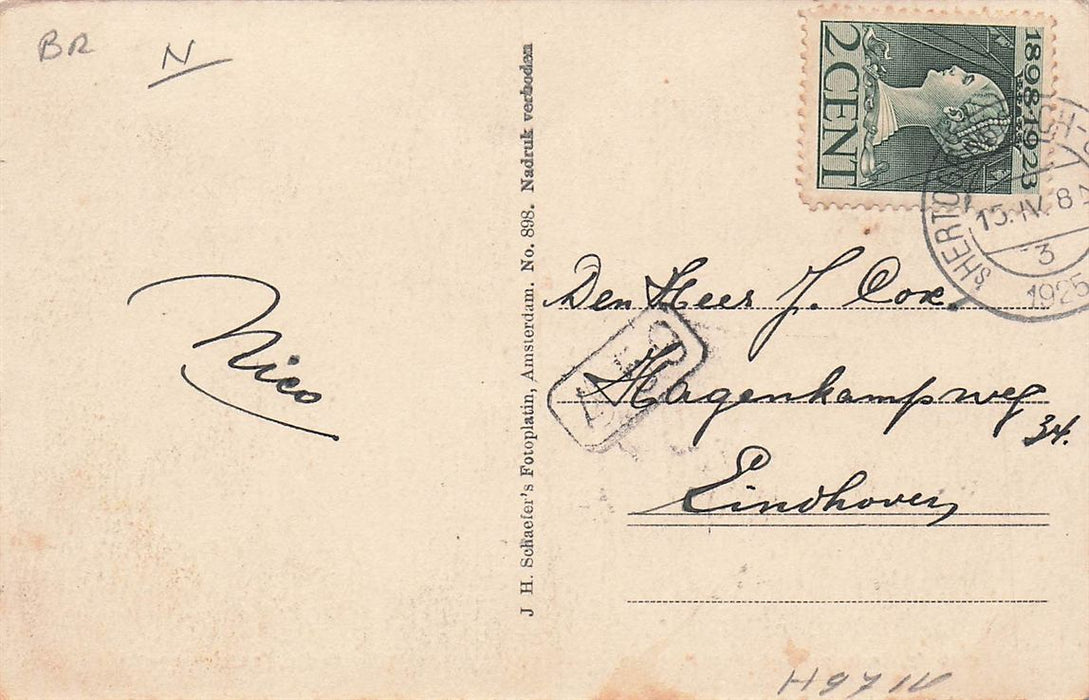 BR
N
Nico
J H. Schaefer's Fotoplatin, Amsterdam. No. 898. Nadruk verboden
1898-1923
2 CENT
15.IV.8
3
1925
Den Heer J. Cox.
Hagenkampweg
34.
Eindhoven